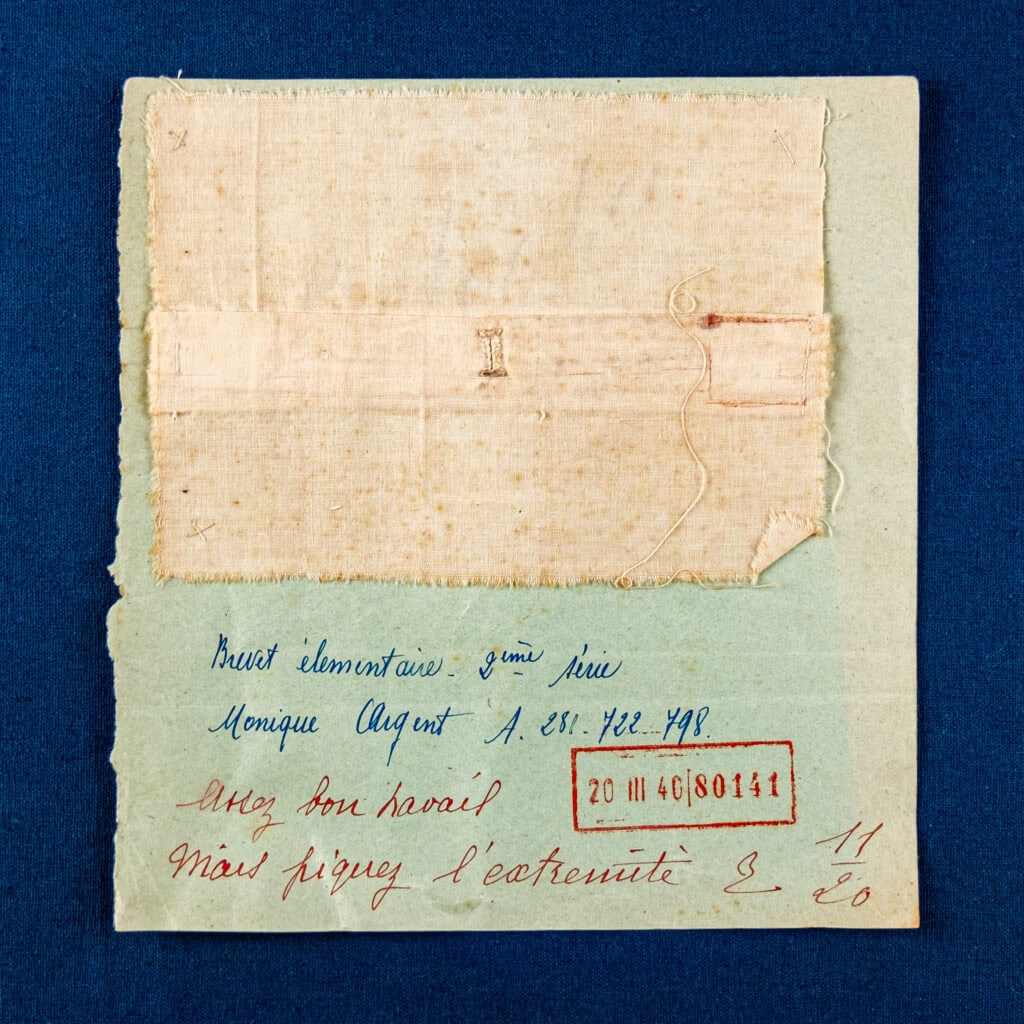 Brevet élementaire - 2ème série
Monique Argent A. 281.722.798.
20 III 40|80141
Assez bon travail
Mais piquez l'extremité 11/20